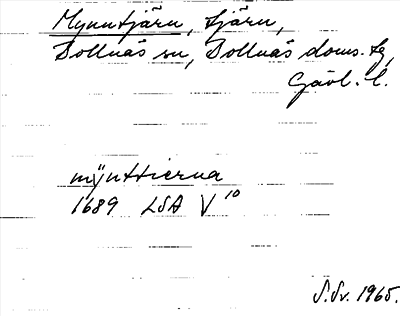 Mynntjärn, tjärn,
Bollnäs sn, Bollnäs doms. tg,
Gävl. l.
mÿnttierna
1689 LSA V 10
S.Sv. 1965.